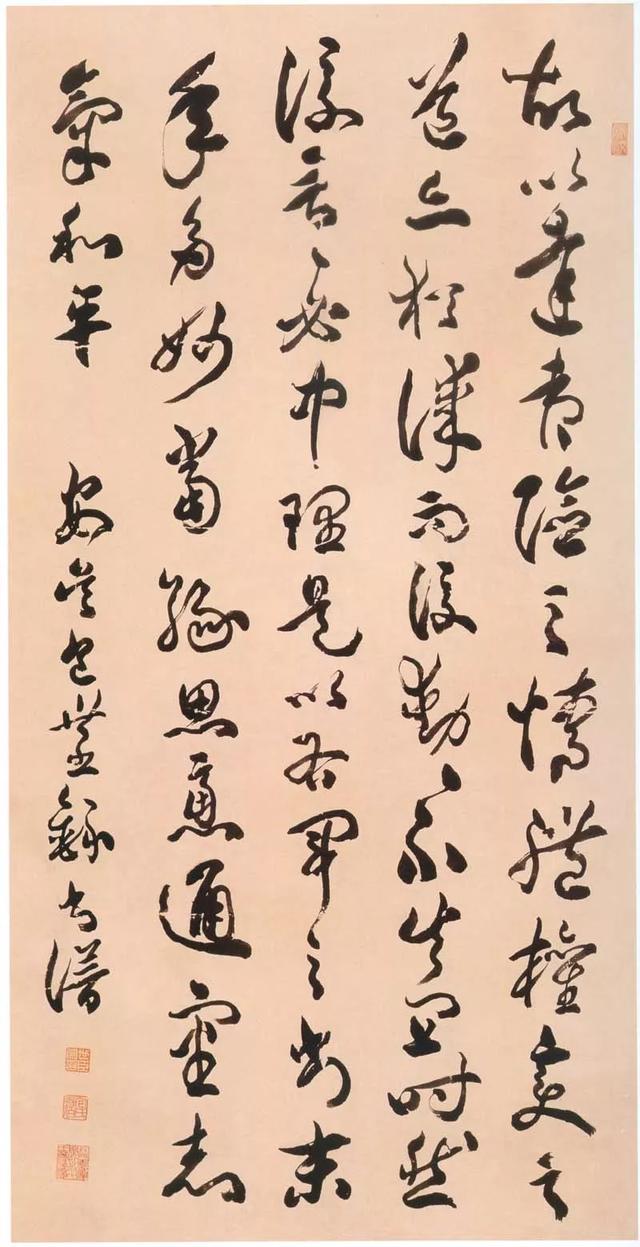 故以達夷險之情體權變之
道亦猶謀而後動々不失宜時然
後言々必中理是以右軍之書末
年多妙當緣思慮通審志
氣和平 安吳包世臣錄書譜